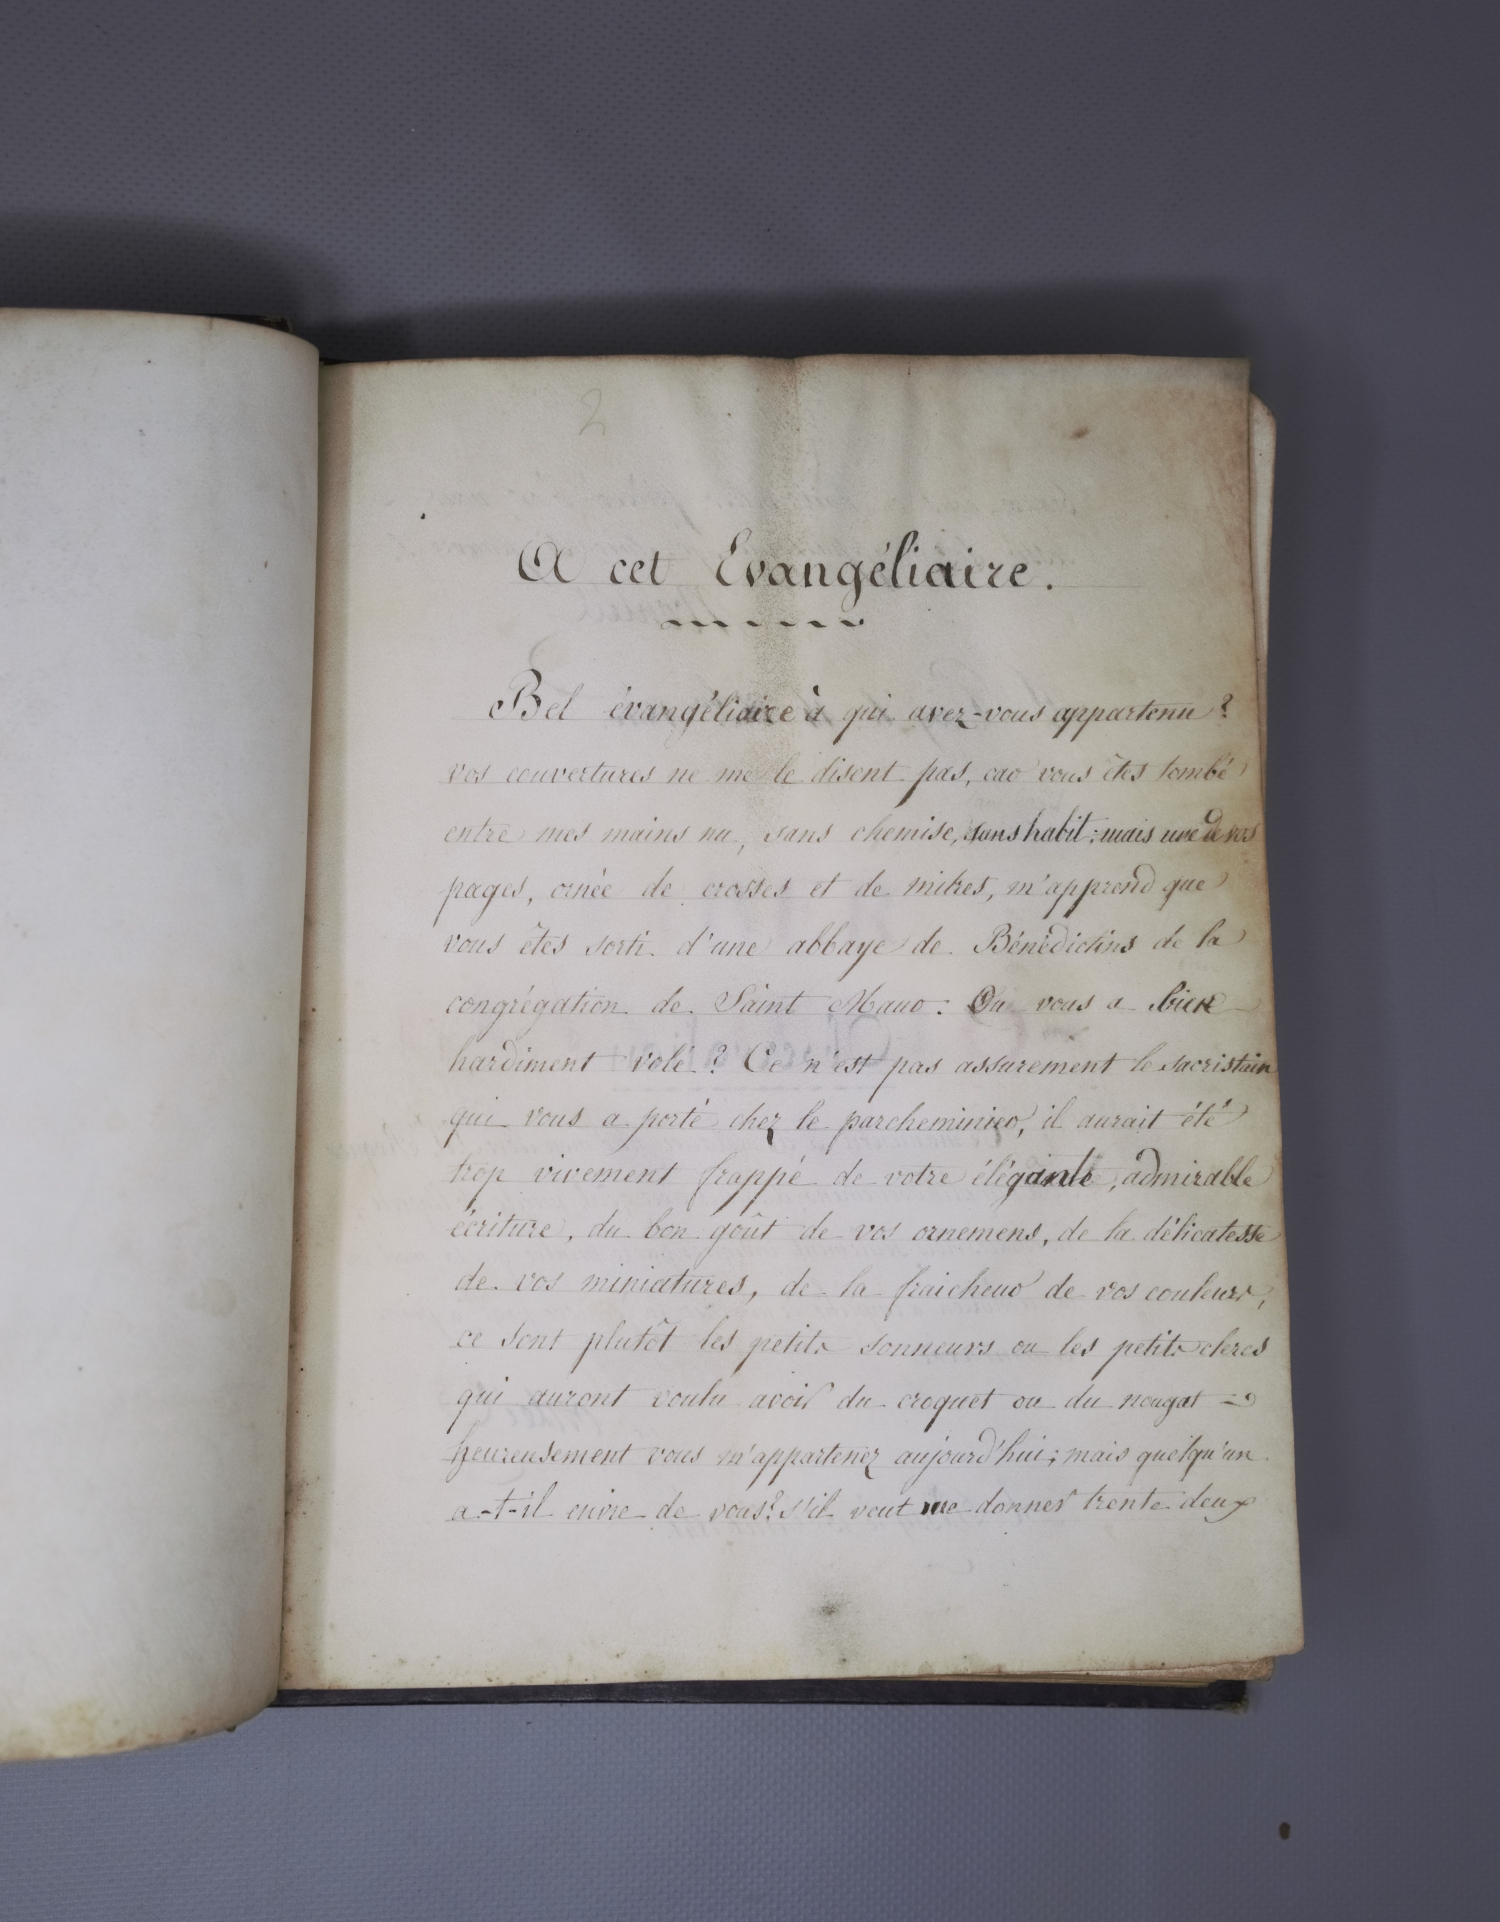 2
A cet Evangéliaire.
Bel évangéliaire à qui avez-vous appartenu ?
vos couvertures ne me le disent pas, car vous êtes tombé
entre mes mains nu, sans chemise, sans habit : mais une de vos
pages, ornée de crosses et de mitres, m'apprend que
vous êtes sorti d'une abbaye de Bénédictins de la
congrégation de Saint Maur : On vous a bien
hardiment volé ? Ce n'est pas assurement le sacristain
qui vous a porté chez le parcheminier, il aurait été
trop vivement frappé de votre élégante, admirable
écriture, du bon goût de vos ornemens, de la délicatesse
de vos miniatures, de la fraicheur de vos couleurs,
ce sont plutôt les petits sonneurs ou les petits clercs
qui auront voulu avoir du croquet ou du nougat =
heureusement vous m'appartenez aujourd'hui ; mais quelqu'un
a-t-il envie de vous ? s'il veut me donner trente deux